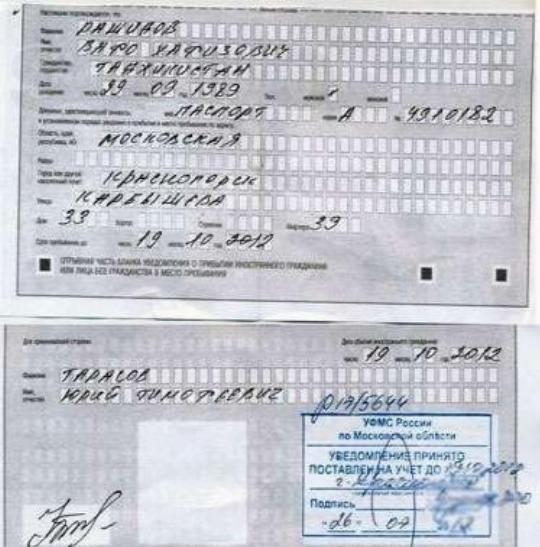 Настоящим подтверждается, что
Фамилия РАШИВОВ
Имя, отчество ВАФО ХАФИЗОВИЧ
Гражданство, подданство ТАДЖИКИСТАН
Дата рождения: число 29 месяц 09 год 1989 Пол: мужской женский
Документ, удостоверяющий личность: вид ПАСПОРТ серия А № 4910182
в установленном порядке уведомил о прибытии в место пребывания по адресу:
Область, край, республика, АО МОСКОВСКАЯ
Район
Город или другой населенный пункт КРАСНОГОРСК
Улица КАРБЫШЕВА
Дом 33 Корпус Строение Квартира 39
Срок пребывания до: число 19 месяц 10 2012
ОТРЫВНАЯ ЧАСТЬ БЛАНКА УВЕДОМЛЕНИЯ О ПРИБЫТИИ ИНОСТРАННОГО ГРАЖДАНИНА
ИЛИ ЛИЦА БЕЗ ГРАЖДАНСТВА В МЕСТО ПРЕБЫВАНИЯ
Для принимающей стороны Дата убытия иностранного гражданина
число 19 месяц 10 2012
Фамилия ТАРАСОВ
Имя, отчество ЮРИЙ ТИМОФЕЕВИЧ
17/5644
УФМС России
по Московской области
УВЕДОМЛЕНИЕ ПРИНЯТО
ПОСТАВЛЕН НА УЧЕТ ДО 19.10.2012
Подпись
26 07